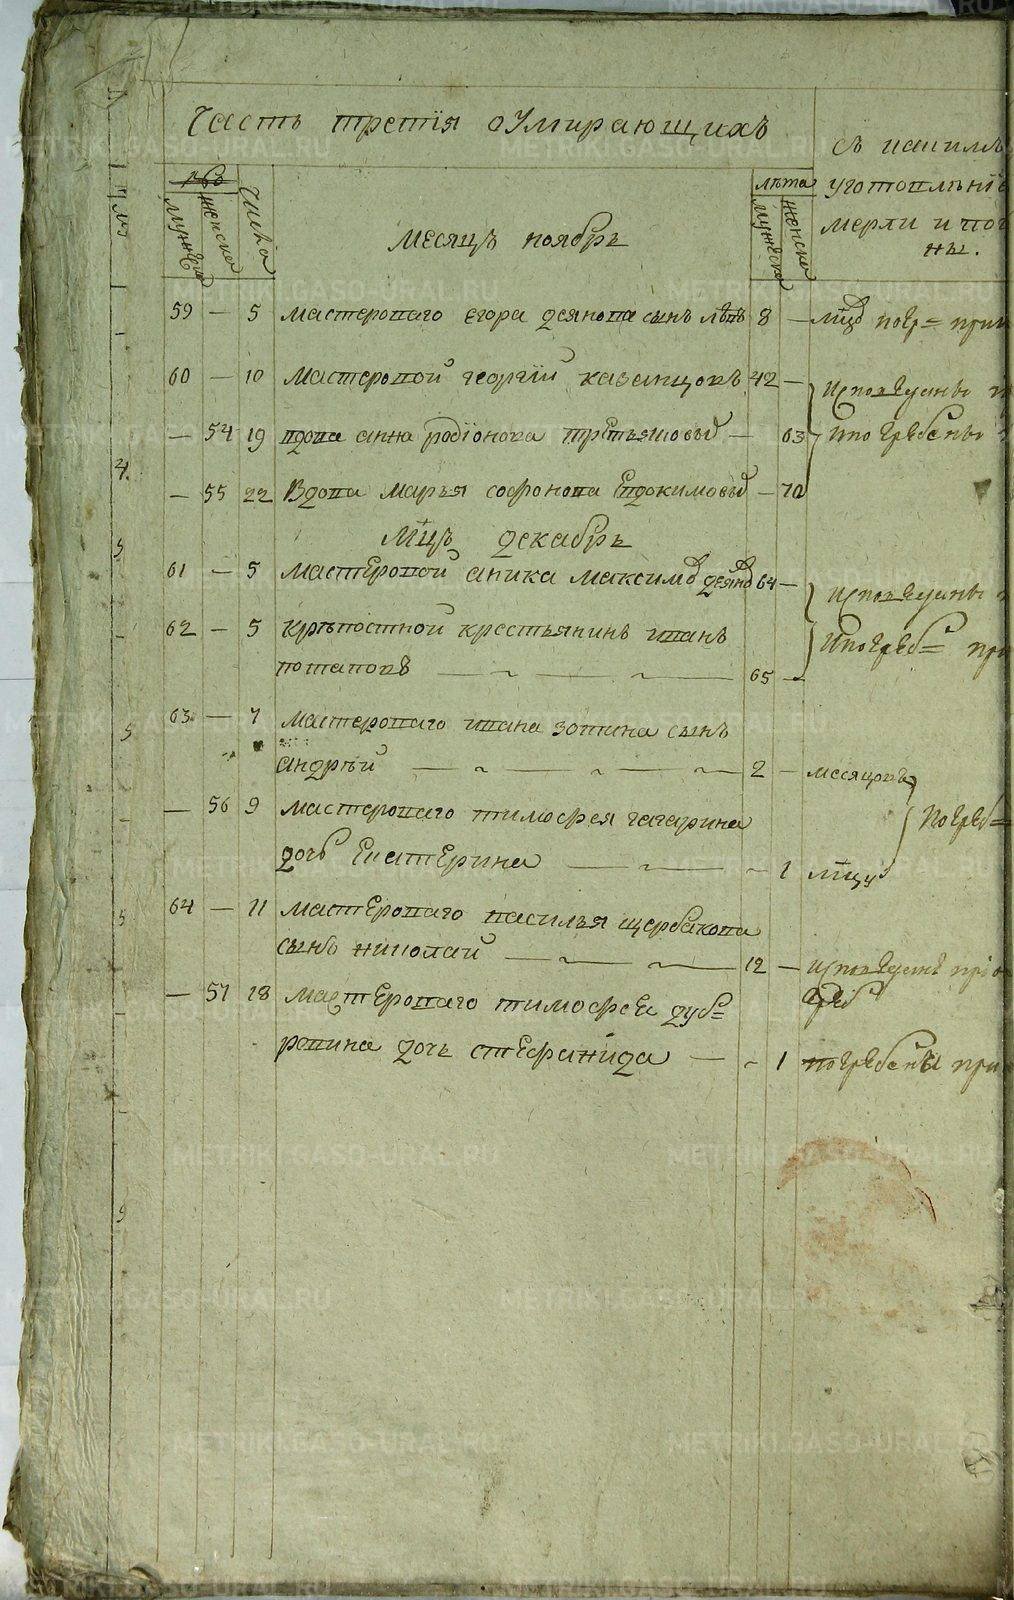 Часть третїя оумирающихъ
мужеска
женска
числа
месяцъ ноябрь
лѣта
мужеска
женска
мерли и
ны.
59 — 5 мастероваго егора деянова сынъ лѣтъ 8 — мцо погр= при
60 — 10 мастеровой георгїй казанцовъ 42 — исповѣданы
— 54 19 вдова анна родїонова третьякова — 63 и погребены
— 55 22 Вдова марья софонова Евдокимова — 70
мцъ декабрь
61 — 5 мастеровой аника максимо деяно 64 — исповѣданы
62 — 5 крѣпостной крестьянинъ иванъ и погреб= при
потаповъ — 65 —
63 — 7 мастероваго ивана зотина сынъ
андрѣй — 2 — месяцовъ
— 56 9 мастероваго тимофея гагарина погреб=
дочь Екатерина — 1 мцу
64 — 11 мастероваго василья щербакова
сынъ николай — 12 — исповѣданъ
греб
— 57 18 мастероваго тимофея дуб=
ровина дочь стефанида — 1 погребены при
METRIKI.GASO-URAL.RU